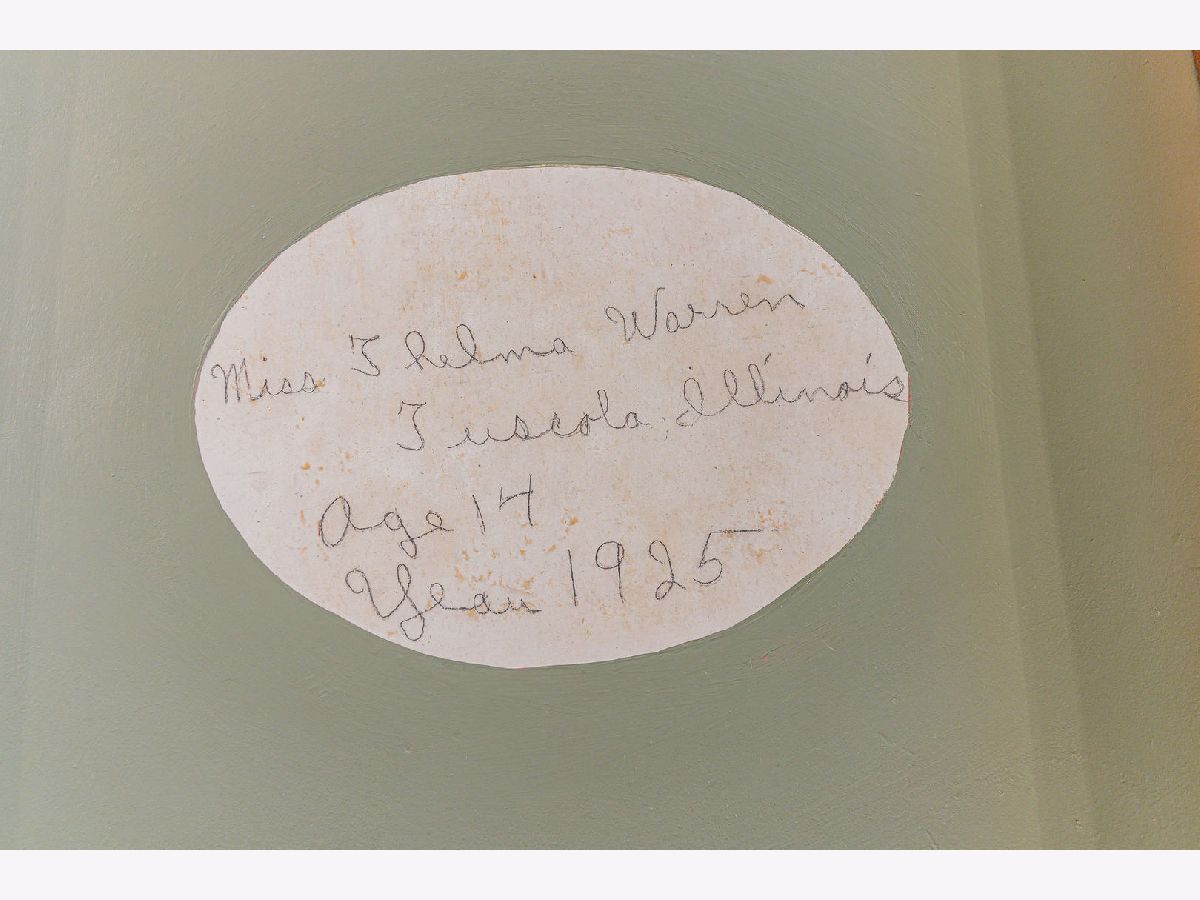 Miss Thelma Warren
Tuscola, Illinois
Age 14
Year 1925